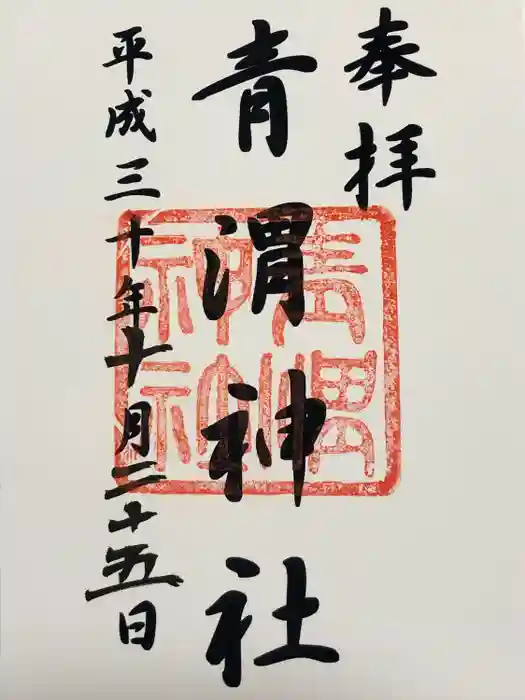 奉拝
青渭神社
平成三十年十月二十五日